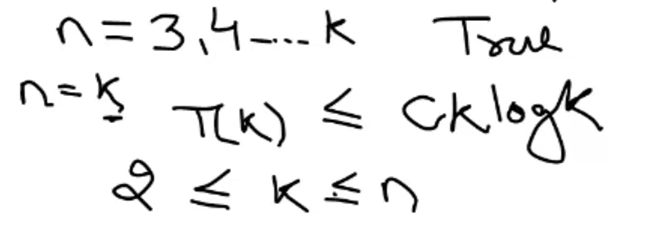 n = 3,4---- k True
n = k T(k) ≤ Cklogk
2 ≤ k ≤ n